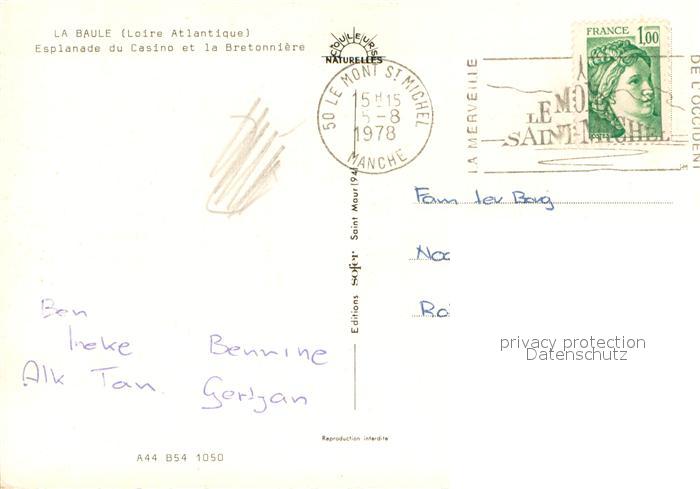 LA BAULE (Loire Atlantique)
Esplanade du Casino et la Bretonnière
COULEURS
NATURELLES
50 LE MONT ST MICHEL
15H15
5-8
1978
MANCHE
FRANCE 1,00
LA MERVEILLE
LE MONT
SAINT-MICHEL
DE L'OCCIDENT
Fam
privacy protection
Datenschutz
Editions sofer Saint Maur (94)
Ben
Ineke Bennine
Alk Tan Gertjan
Reproduction interdite
A44 B54 1050